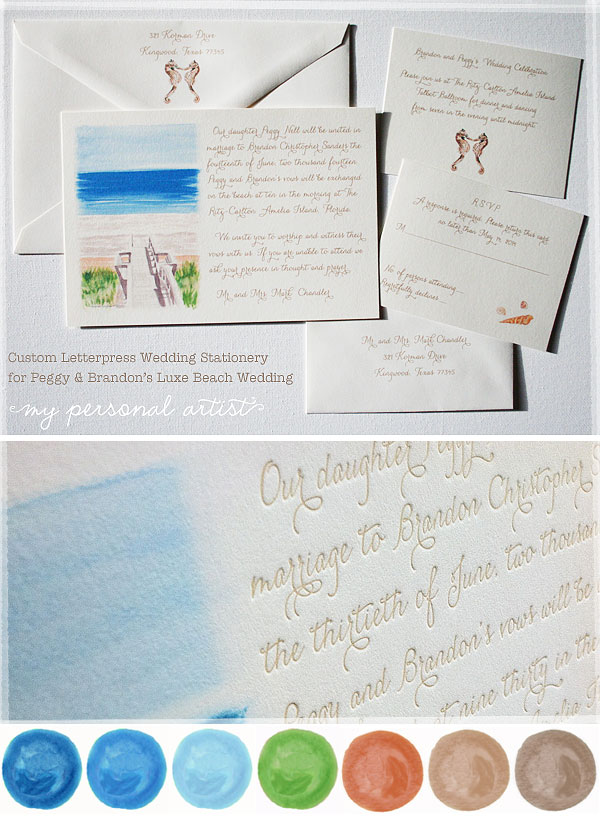 321 Korman Drive
Kingwood, Texas 77345
Our daughter Peggy Nell will be united in
marriage to Brandon Christopher Sanders the
fourteenth of June, two thousand fourteen.
Peggy and Brandon's vows will be exchanged
on the beach at ten in the morning at The
Ritz-Carlton Amelia Island, Florida.
We invite you to worship and witness their
vows with us. If you are unable to attend we
ask your presence in thought and prayer.
Mr. and Mrs. Mark Chandler
Brandon and Peggy's Wedding Celebration
Please join us at The Ritz-Carlton Amelia Island
Talbot Ballroom for dinner and dancing
from seven in the evening until midnight.
R.S.V.P.
A response is required. Please return this card
no later than May 14, 2014
M
No. of persons attending
Regretfully declines
Mr. and Mrs. Mark Chandler
321 Korman Drive
Kingwood, Texas 77345
Custom Letterpress Wedding Stationery
for Peggy & Brandon's Luxe Beach Wedding
my personal artist
Our daughter Peggy
marriage to Brandon Christopher S
the thirtieth of June, two thousan
Peggy and Brandon's vows will be
at nine thirty in the
Amelia